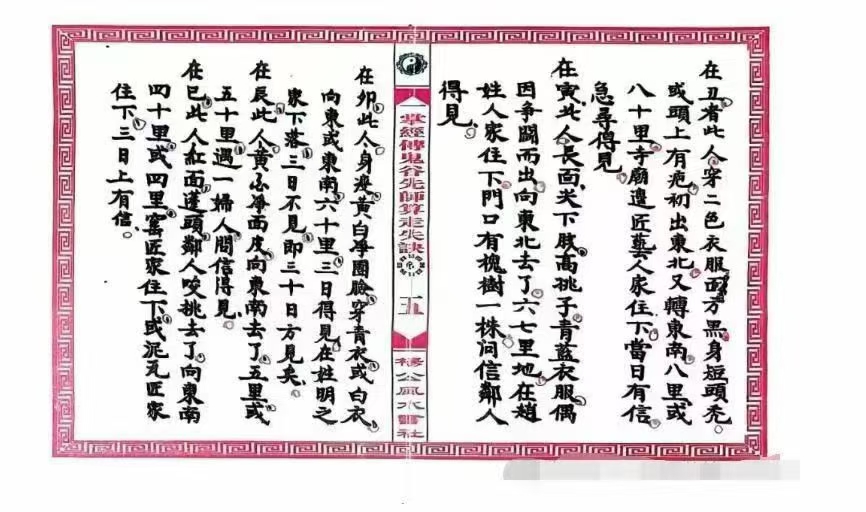 在丑者此人穿二色衣服面方黑身短頭禿
或頭上有疤初出東北又轉東南八里或
八十里寺廟邊匠藝人家住下當日有信
急尋得見
在寅此人長面尖下肢高挑子青藍衣服偶
因爭鬪而出向東北去了六七里地在趙
姓人家住下門口有槐樹一株问信鄰人
得見
掌經傳鬼谷先師算走失訣
一五
楊公風水書社
在卯此人身瘦黃白淨圓臉穿青衣或白衣
向東或東南六十里三日得見在姓明之
家下落三日不見即三十日方見矣
在辰此人黃色淨面皮向東南去了五里或
五十里遇一婦人問信得見
在巳此人紅面蓬頭鄰人咬挑去了向東南
四十里或四里窰匠家住下或泥瓦匠家
住下三日上有信